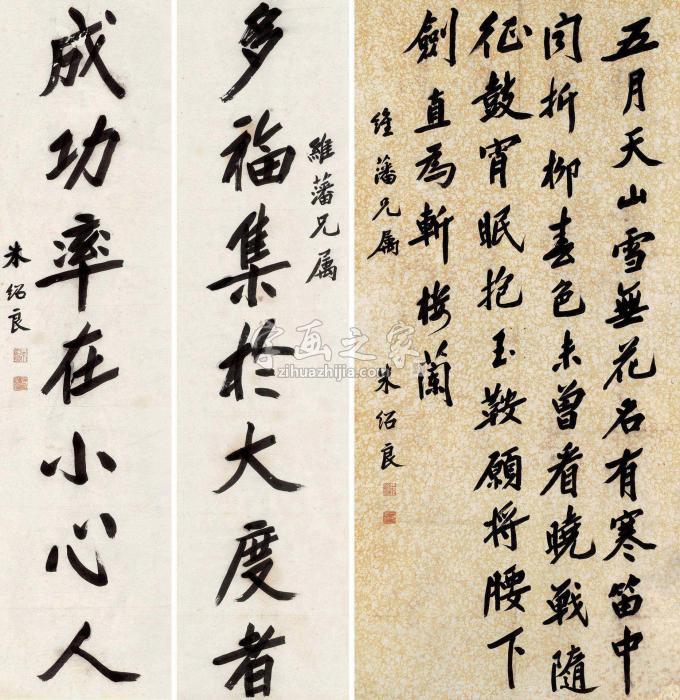 五月天山雪無花名有寒笛中
闻折柳春色未曾看曉戰隨
征鼓宵眠抱玉鞍願将腰下
劍直為斬楼蘭
維藩兄属
朱紹良
維藩兄属
多福集於大度者
成功率在小心人
朱紹良
字画之家
zihuazhijia.com